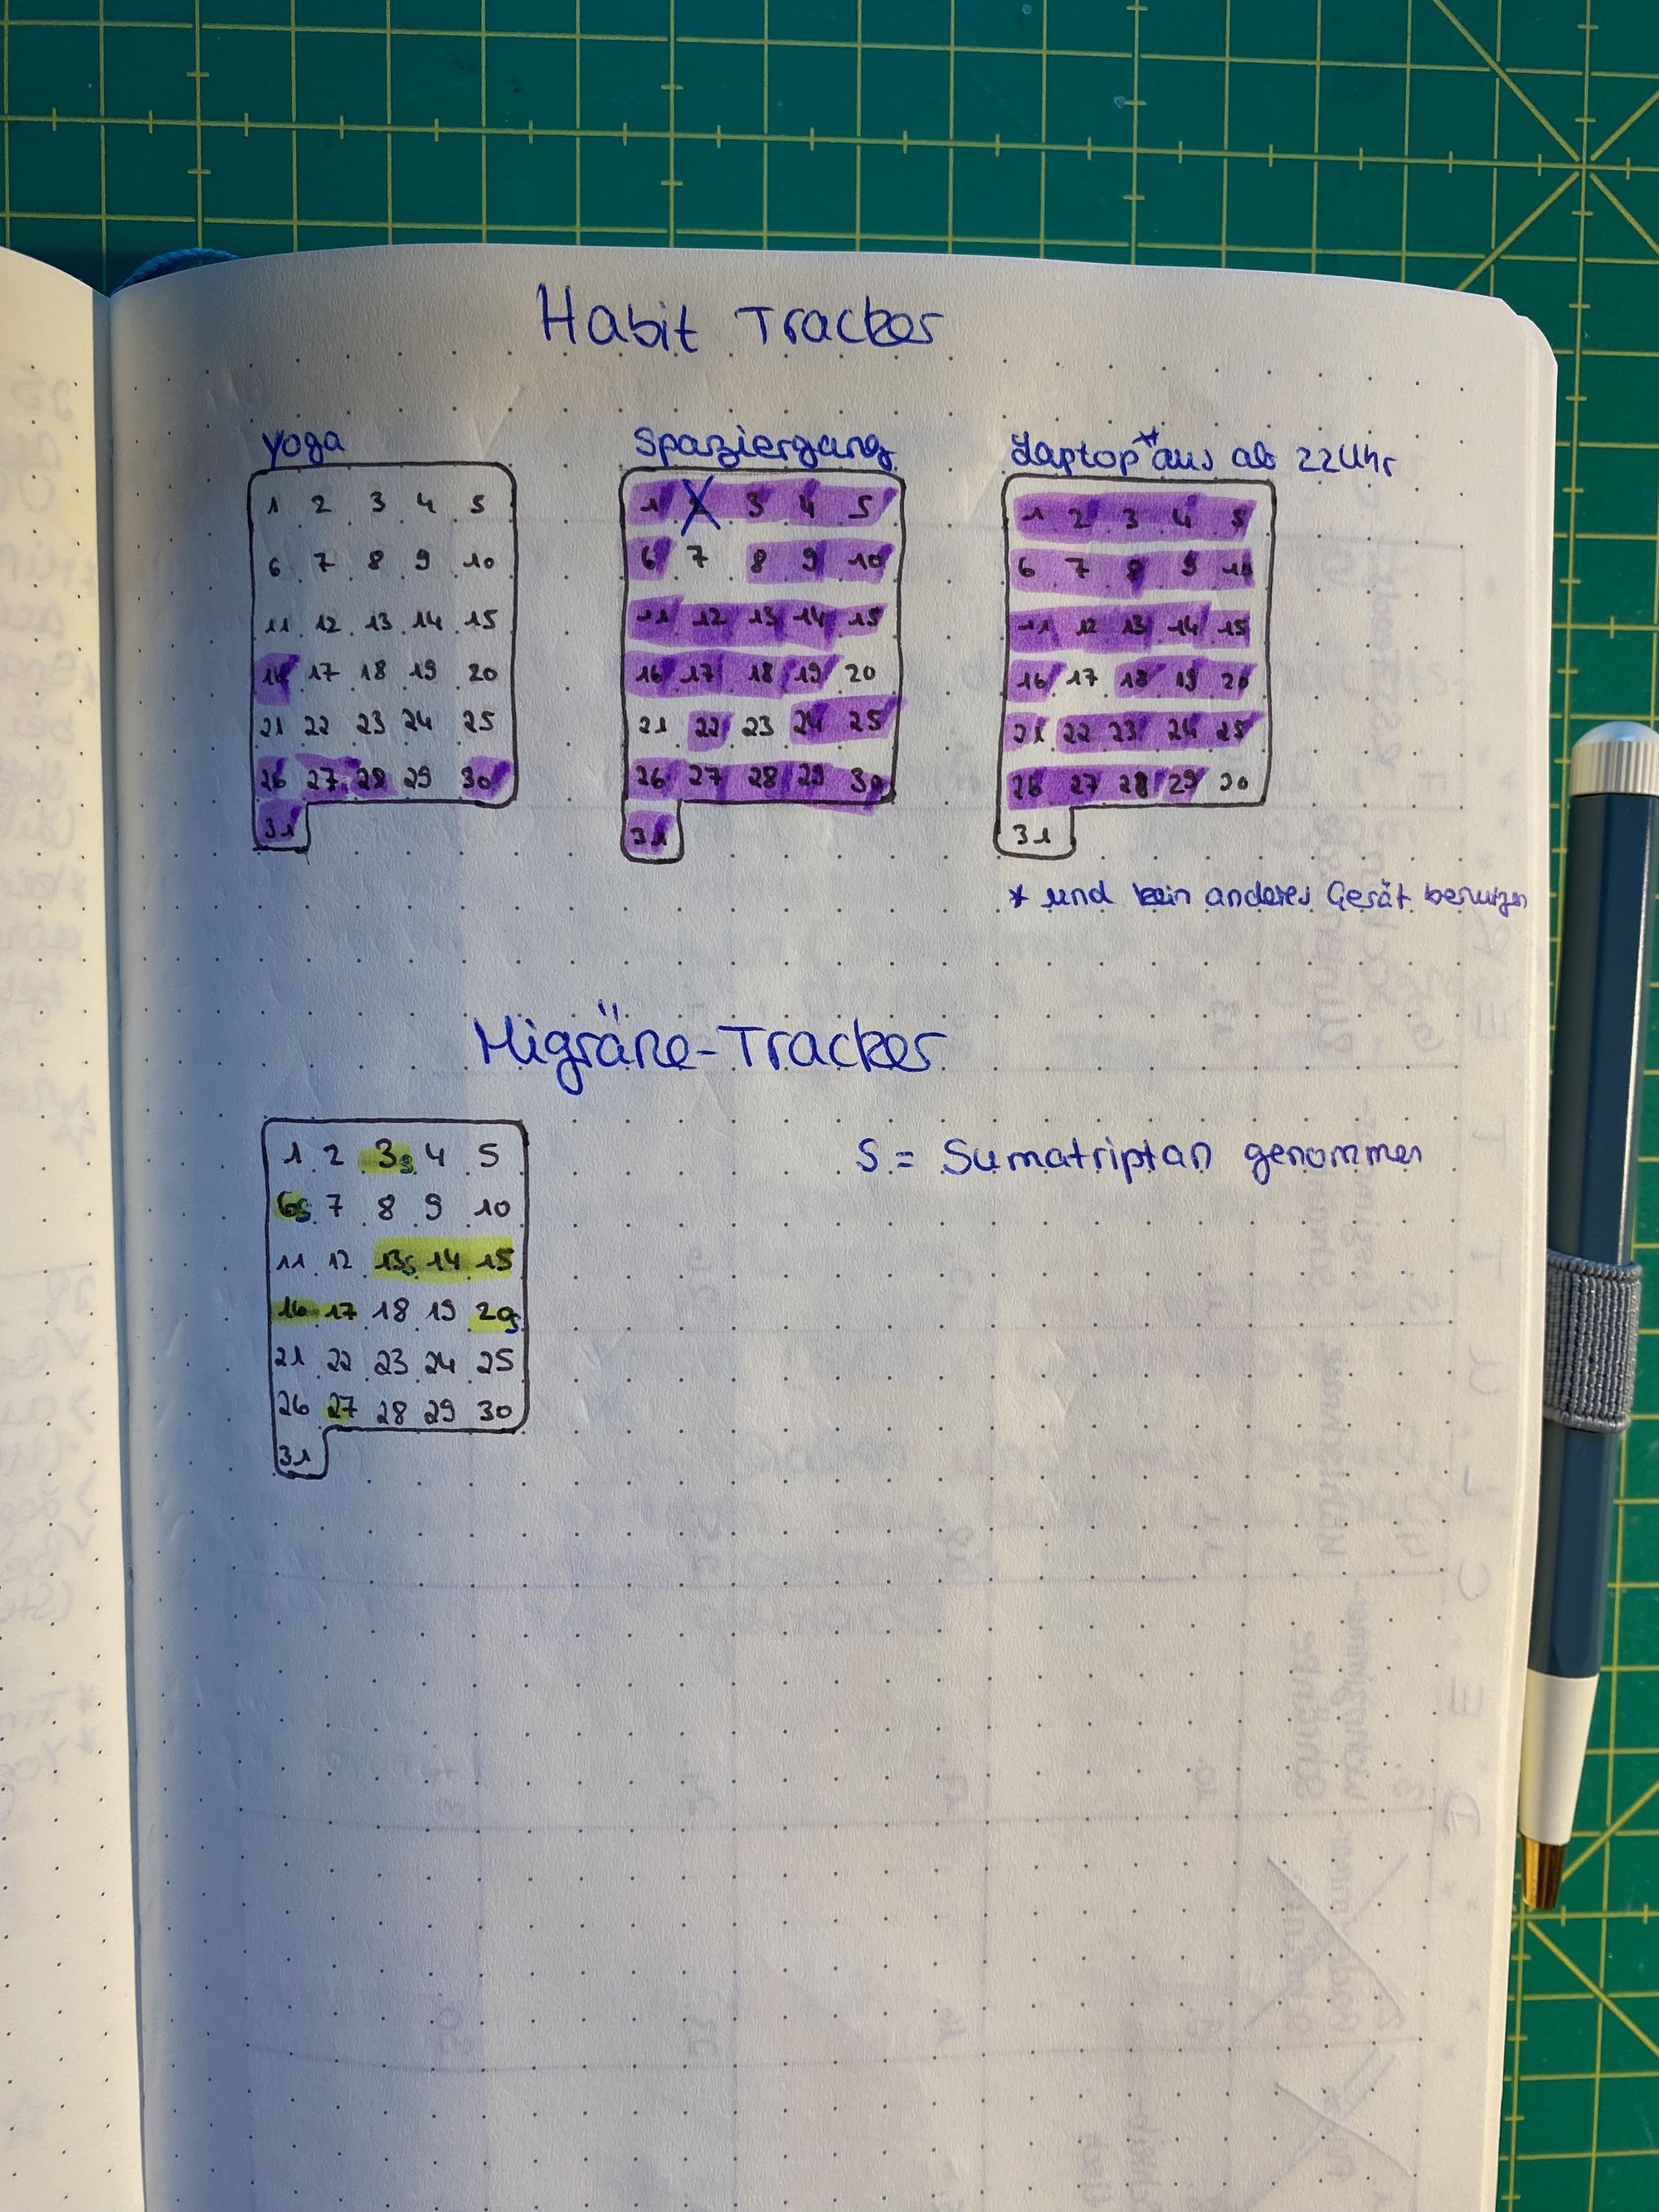 Habit Tracker
Yoga
1 2 3 4 5
6 7 8 9 10
11 12 13 14 15
16 17 18 19 20
21 22 23 24 25
26 27 28 29 30
31
Spaziergang
1 2 3 4 5
6 7 8 9 10
11 12 13 14 15
16 17 18 19 20
21 22 23 24 25
26 27 28 29 30
31
Laptop* aus ab 22 Uhr
1 2 3 4 5
6 7 8 9 10
11 12 13 14 15
16 17 18 19 20
21 22 23 24 25
26 27 28 29 30
31
* und kein anderes Gerät benutzen
Migräne-Tracker
1 2 3s 4 5
6s 7 8 9 10
11 12 13s 14 15
16 17 18 19 20s
21 22 23 24 25
26 27 28 29 30
31
S = Sumatriptan genommen